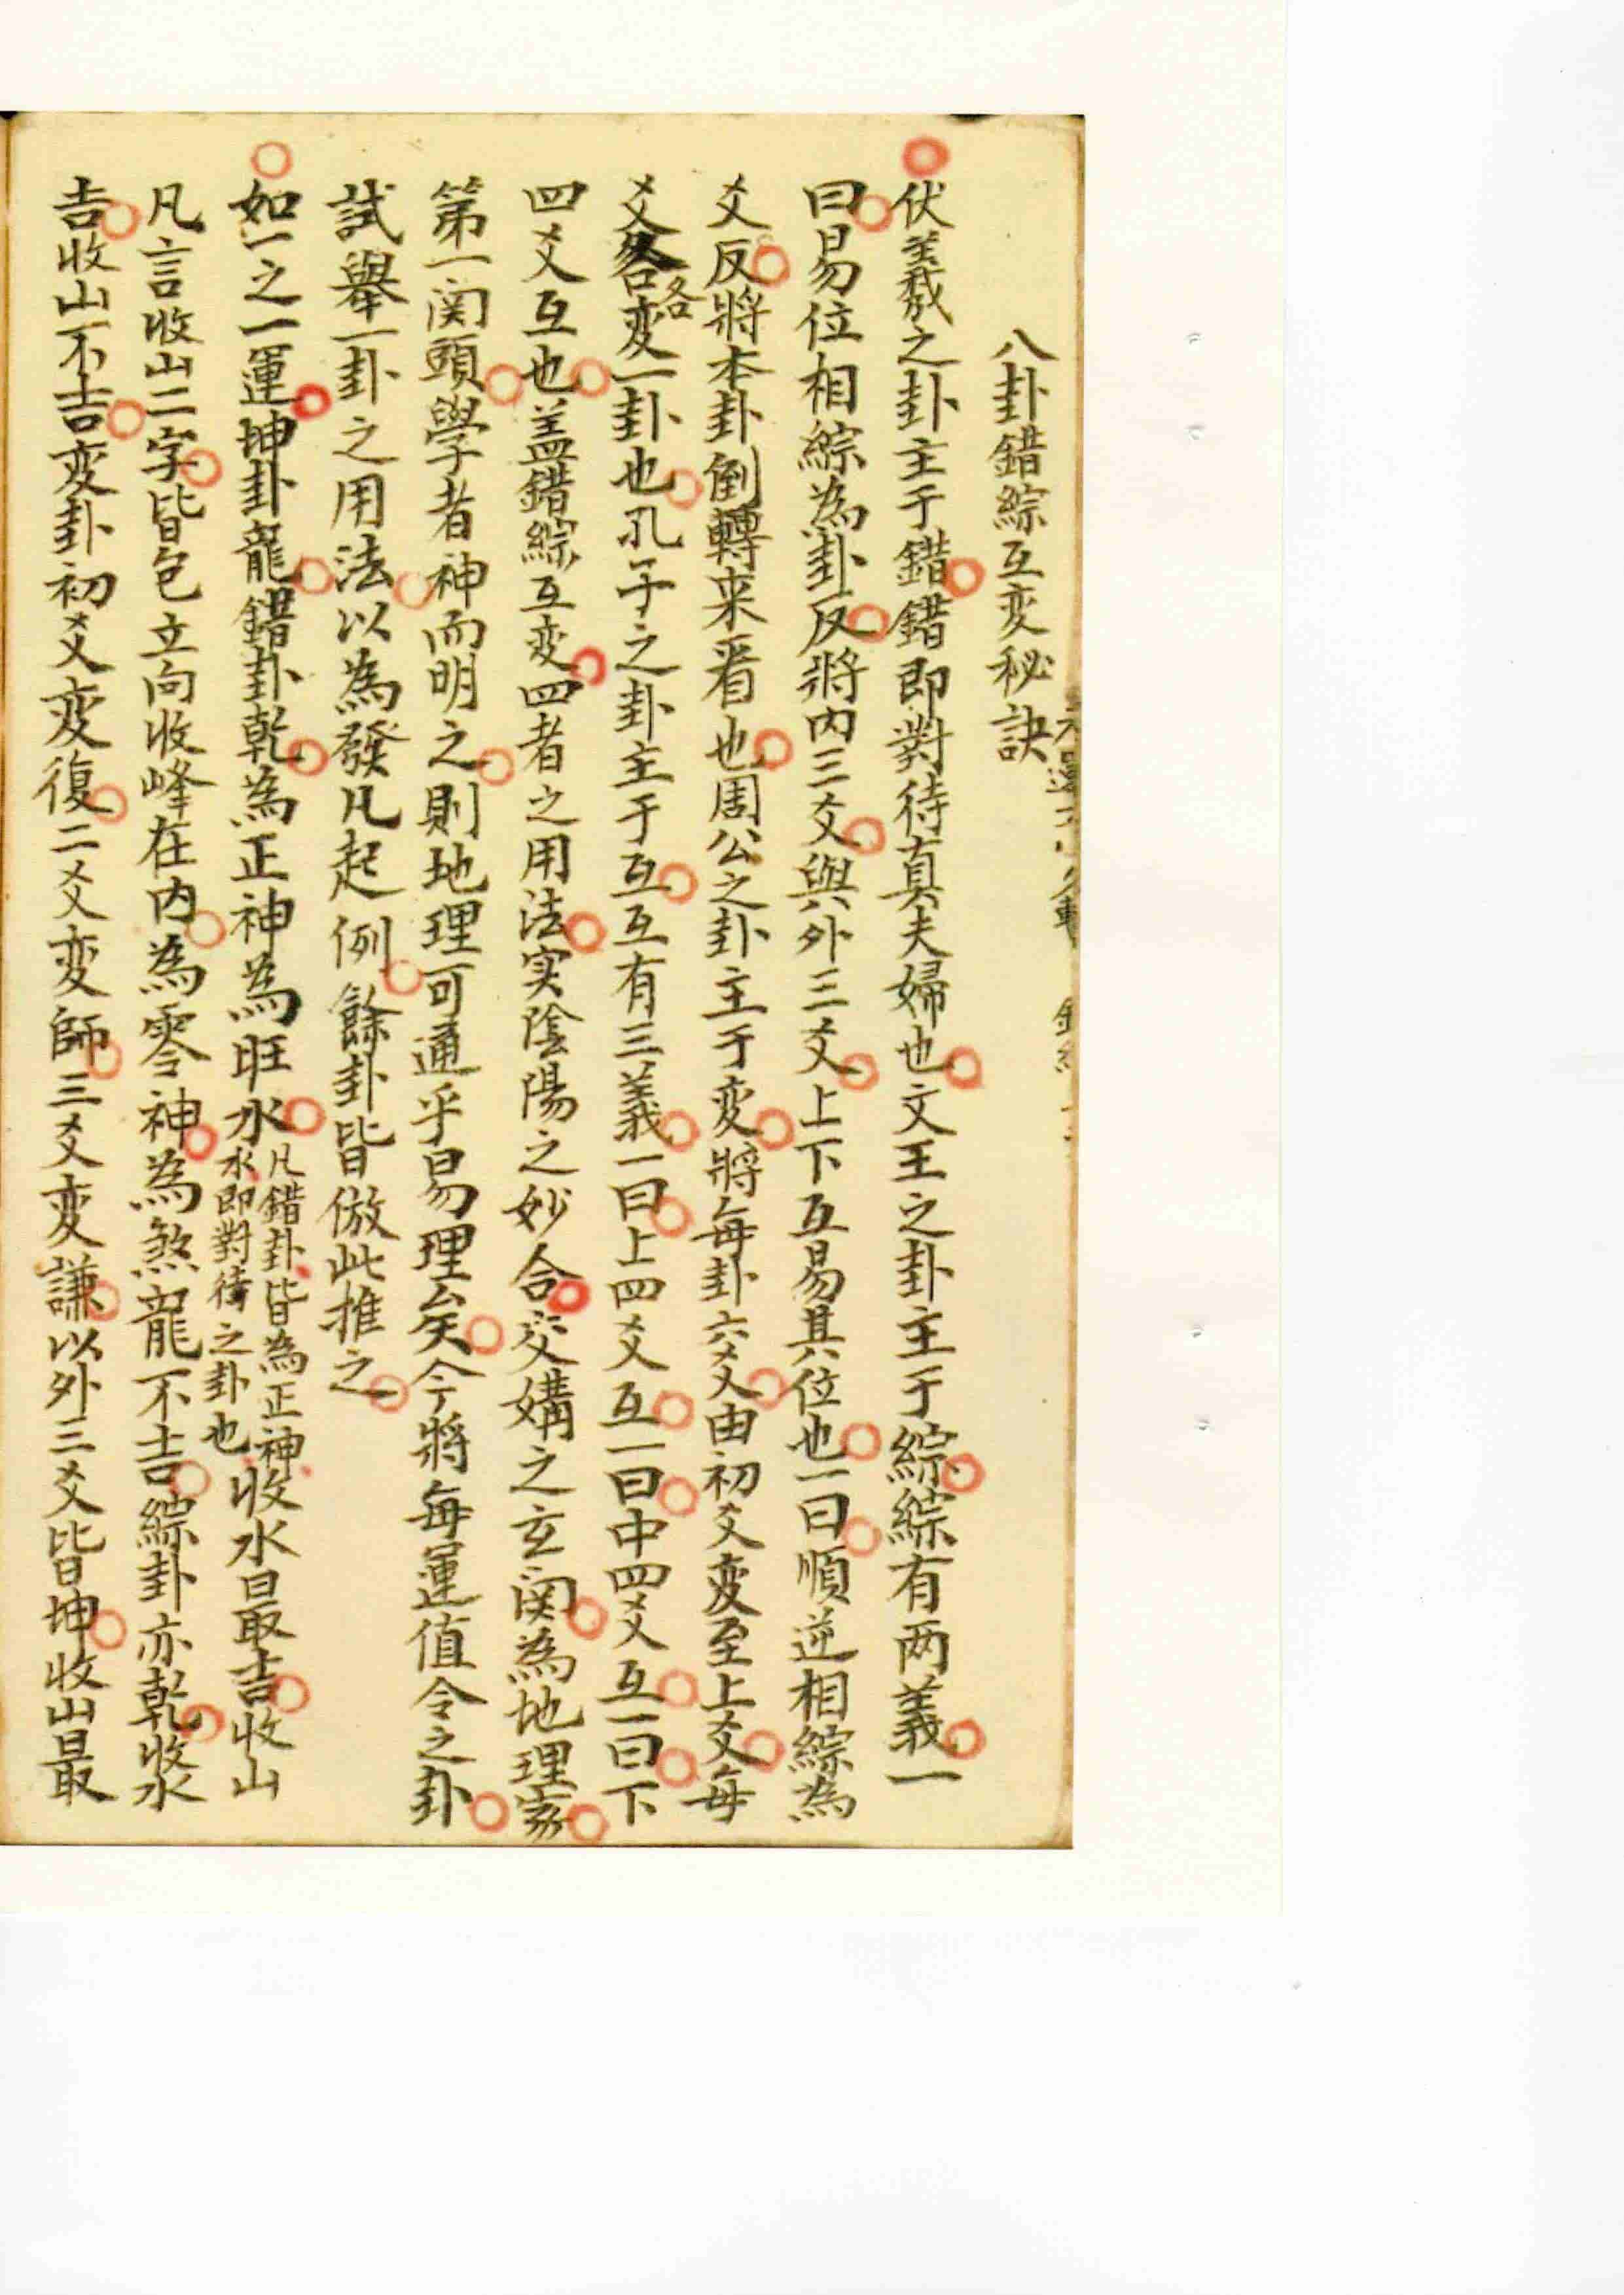 八卦錯綜互変秘訣
伏羲之卦主于錯錯即對待真夫婦也文王之卦主于綜綜有两義一
曰易位相綜為卦反將内三爻與外三爻上下互易其位也一曰順逆相綜為
爻反將本卦倒轉来看也周公之卦主于変將每卦六爻由初爻変至上爻每
爻各変一卦也孔子之卦主于互互有三義一曰上四爻互一曰中四爻互一曰下
各
四爻互也盖錯綜互変四者之用法实陰陽之妙合交媾之玄関為地理家
第一関頭學者神而明之則地理可通乎易理矣今將每運值令之卦
試舉一卦之用法以為發凡起例餘卦皆倣此推之
如一之一運坤卦龍錯卦乾為正神為旺水凡錯卦皆為正神水即對待之卦也收水最吉收山
凡言收山二字皆包立向收峰在内為零神為煞龍不吉綜卦亦乾收水
吉收山不吉変卦初爻変復二爻変師三爻変謙以外三爻皆坤收山最